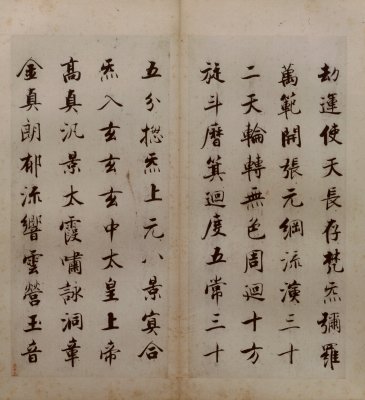 劫運使天長存梵炁彌羅
萬範開張元綱流演三十
二天輪轉無色周迴十方
旋斗曆箕迴度五常三十
五分揔炁上元八景冥合
炁入玄玄玄中太皇上帝
高真汎景太霞嘯詠洞章
金真朗郁流響雲營玉音